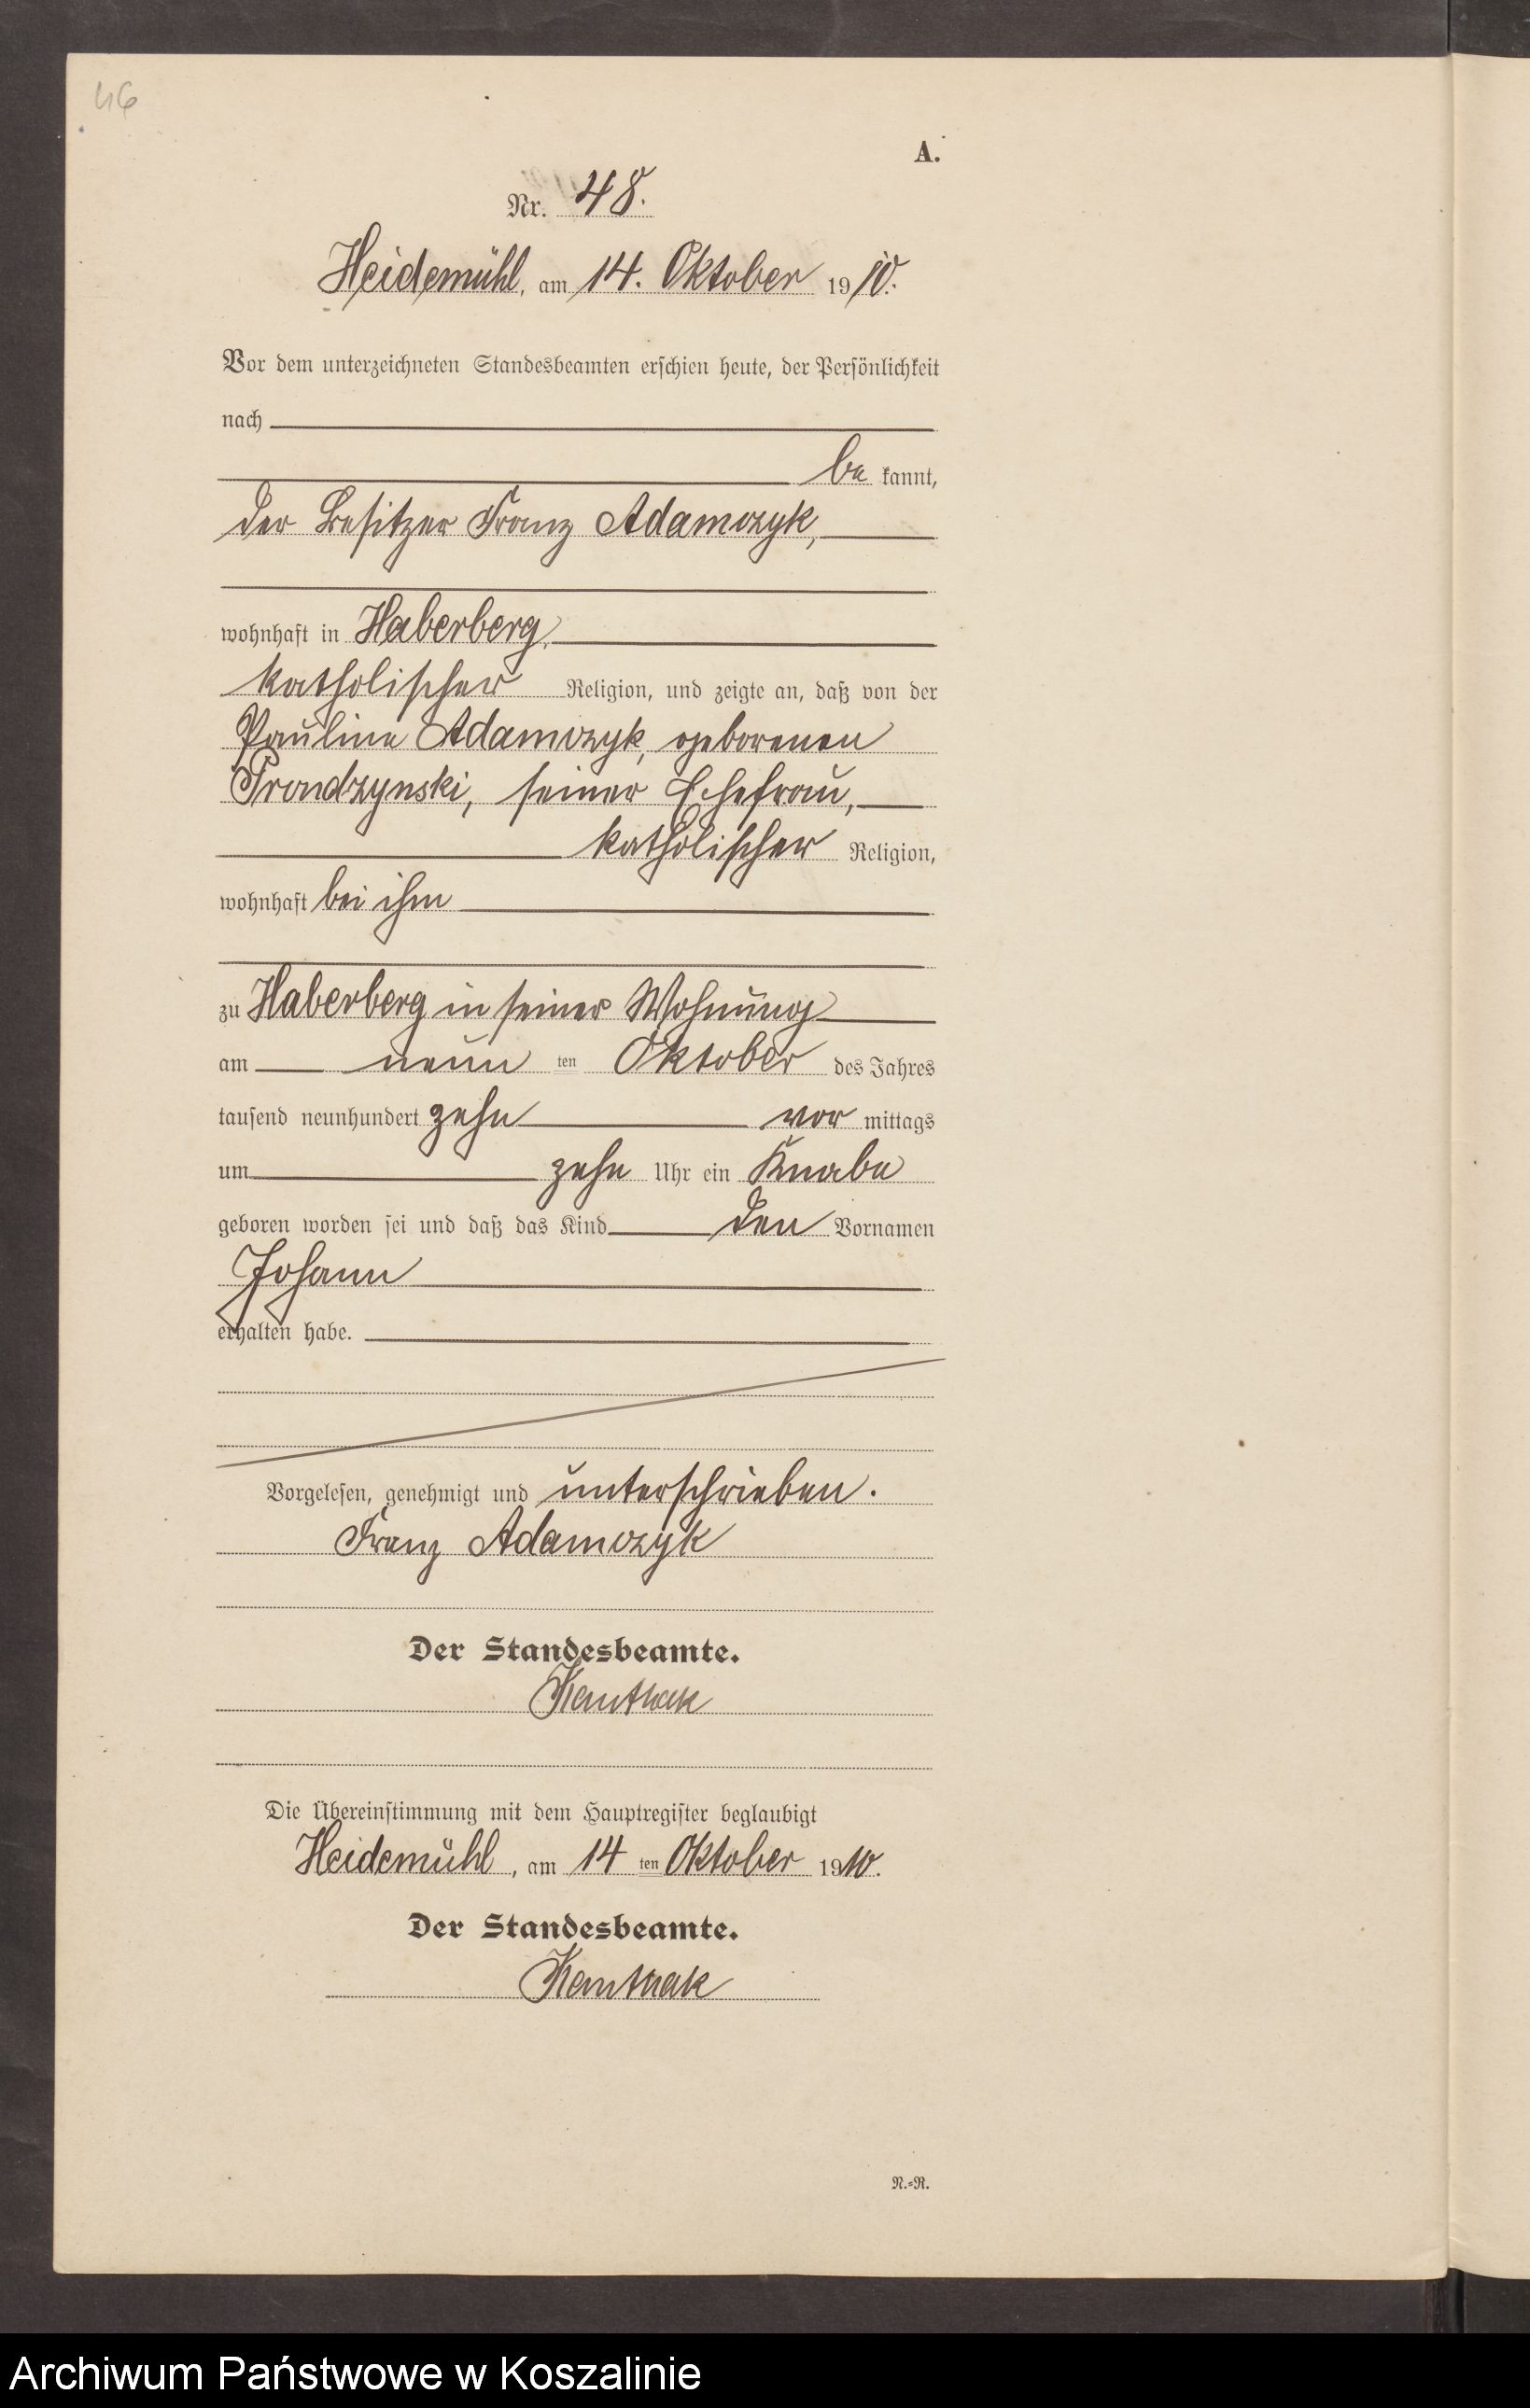 46
A.
Nr. 48.
Heidemühl, am 14. Oktober 1910.
Vor dem unterzeichneten Standesbeamten erschien heute, der Persönlichkeit
nach
be kannt,
der Besitzer Franz Adamczyk,
wohnhaft in Haberberg,
katholischer Religion, und zeigte an, daß von der
Pauline Adamczyk, geborenen
Prondzynski, seiner Ehefrau,
katholischer Religion,
wohnhaft bei ihm
zu Haberberg in seiner Wohnung
am neun ten Oktober des Jahres
tausend neunhundert zehn vor mittags
um zehn Uhr ein Knabe
geboren worden sei und daß das Kind den Vornamen
Johann
erhalten habe.
Vorgelesen, genehmigt und unterschrieben.
Franz Adamczyk
Der Standesbeamte.
Die Übereinstimmung mit dem Hauptregister beglaubigt
Heidemühl, am 14 ten Oktober 1910.
Der Standesbeamte.
N.=R.
Archiwum Państwowe w Koszalinie